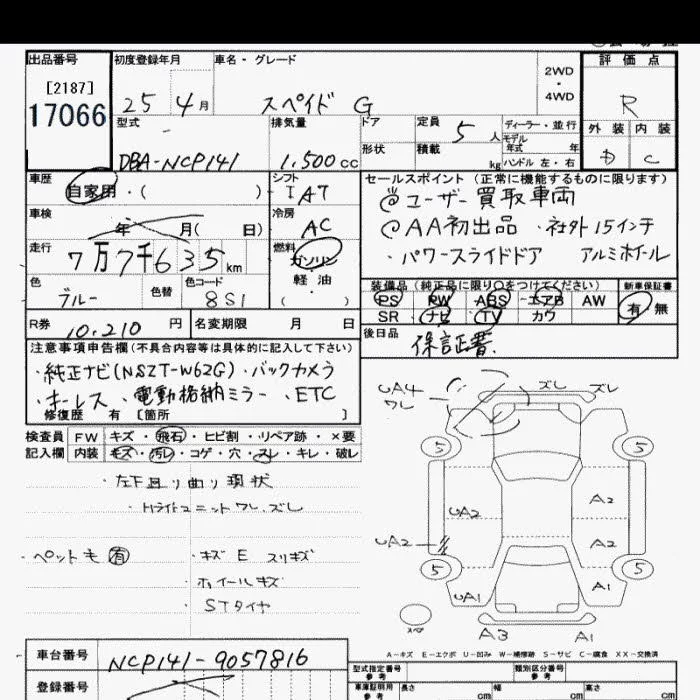 出品番号 初度登録年月 車名・グレード 2WD・4WD 評価点
[2187]
17066
25 4月 スペイド G R
型式 排気量 ドア 定員 5人 ディーラー・並行 外装 内装
形状 積載 kg モデル年式 年 ハンドル 左・右
DBA-NCP141 1,500cc D C
車歴 シフト セールスポイント (正常に機能するものに限ります)
自家用・( ) I A7
◎ユーザー買取車両
車検 年 月( 日) 冷房 AC
◎AA初出品 ・社外15インチ
走行 7万7千635km 燃料 ガソリン・軽油・( )
・パワースライドドア アルミホイール
色 ブルー 色替 色コード 8S1
装備品 (純正品に限り○をつけてください) 新車保証書
PS PW ABS エアB AW 有・無
SR ナビ TV カワ
R券 10,210円 名変期限 月 日 後日品 保証書.
注意事項申告欄 (不具合内容等は具体的に記入して下さい)
・純正ナビ(NSZT-W62G)・バックカメラ
・キーレス、電動格納ミラー、ETC
修復歴 有 [箇所 ]
検査員記入欄 FW キズ・飛石・ヒビ割・リペア跡・×要
内装 キズ・汚レ・コゲ・穴・スレ・キレ・破レ
・左F廻り曲り現状
・Hライトユニットワレ、ズレ
・ペット毛 有 ・キズE スリキズ
・ホイールキズ
・STタイヤ
UA4 ワレ ズレ ズレ
5 5
UA2 A2
UA2 A2
5 5
UA1 A1
スペア A3 A1
A-キズ E-エクボ U-凹み W-補修跡 S-サビ C-腐食 XX-交換済
車台番号 NCP141-9057816
型式指定番号参考 類別区分番号参考
登録番号 車庫証明用参考 長さ cm 幅 cm 高さ cm